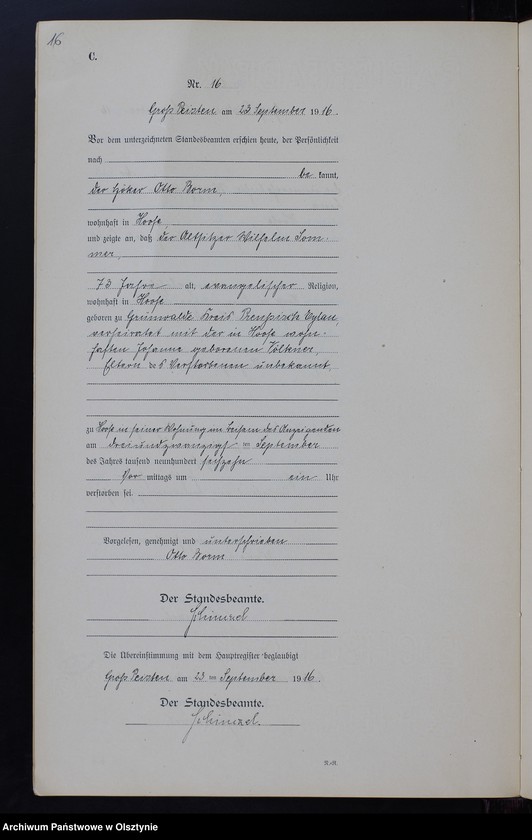 16
C.
Nr. 16
Groß Peisten am 23 September 1916.
Vor dem unterzeichneten Standesbeamten erschien heute, der Persönlichkeit
nach
be kannt,
der Otto Worm,
wohnhaft in Hoofe,
und zeigte an, daß der Altsitzer Wilhelm Som-
mer,
73 Jahre alt, evangelischer Religion,
wohnhaft in Hoofe
geboren zu Grünwalde Kreis Preußisch Eylau,
verheiratet mit der in Hoofe wohn-
haften Johanne geborenen
Eltern des Verstorbenen unbekannt,
zu Hoofe in seiner Wohnung im Beisein des Anzeigenden
am dreiundzwanzigsten September
des Jahres tausend neunhundert sechzehn
Vor mittags um ein Uhr
verstorben sei.
Vorgelesen, genehmigt und unterschrieben
Otto Worm
Der Standesbeamte.
Schimzel
Die Übereinstimmung mit dem Hauptregister beglaubigt
Groß Peisten am 23 September 1916.
Der Standesbeamte.
Schimzel.
N.-R.
Archiwum Państwowe w Olsztynie